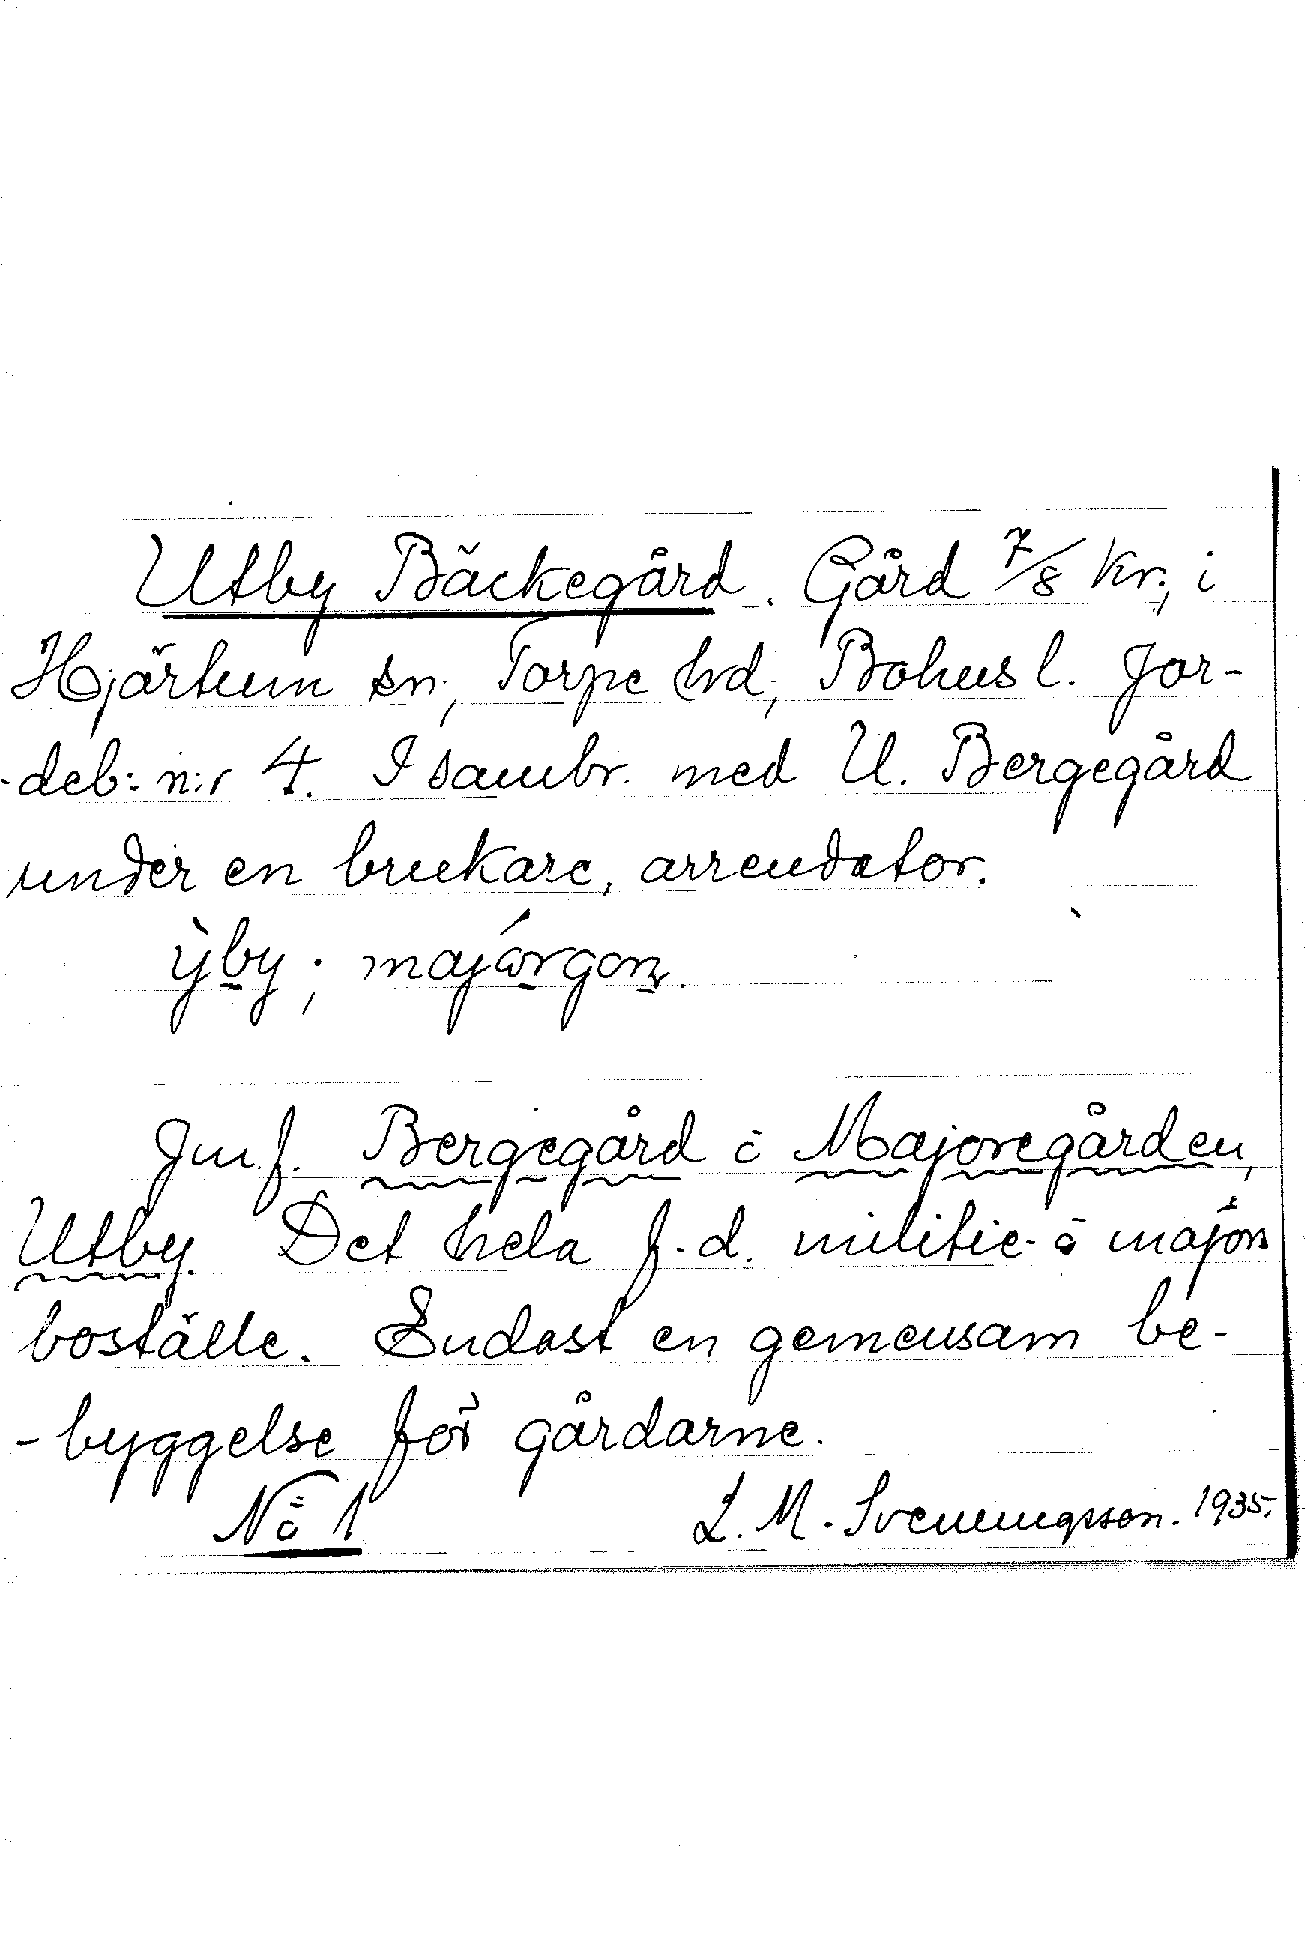 Utby Bäckegård. Gård 7/8 kr., i
Hjärtum sn., Torpe hd., Bohusl. Jor-
-deb: n:r 4. I sambr. med U. Bergegård
under en brukare, arrendator.
ẏ̀by; majórgon.
Jmf. Bergegård o Majoregården,
Utby. Det hela f.d. militie- o majors
boställe. Endast en gemensam be-
-byggelse för gårdarne.
No 1 L. M. Svenungsson. 1935.